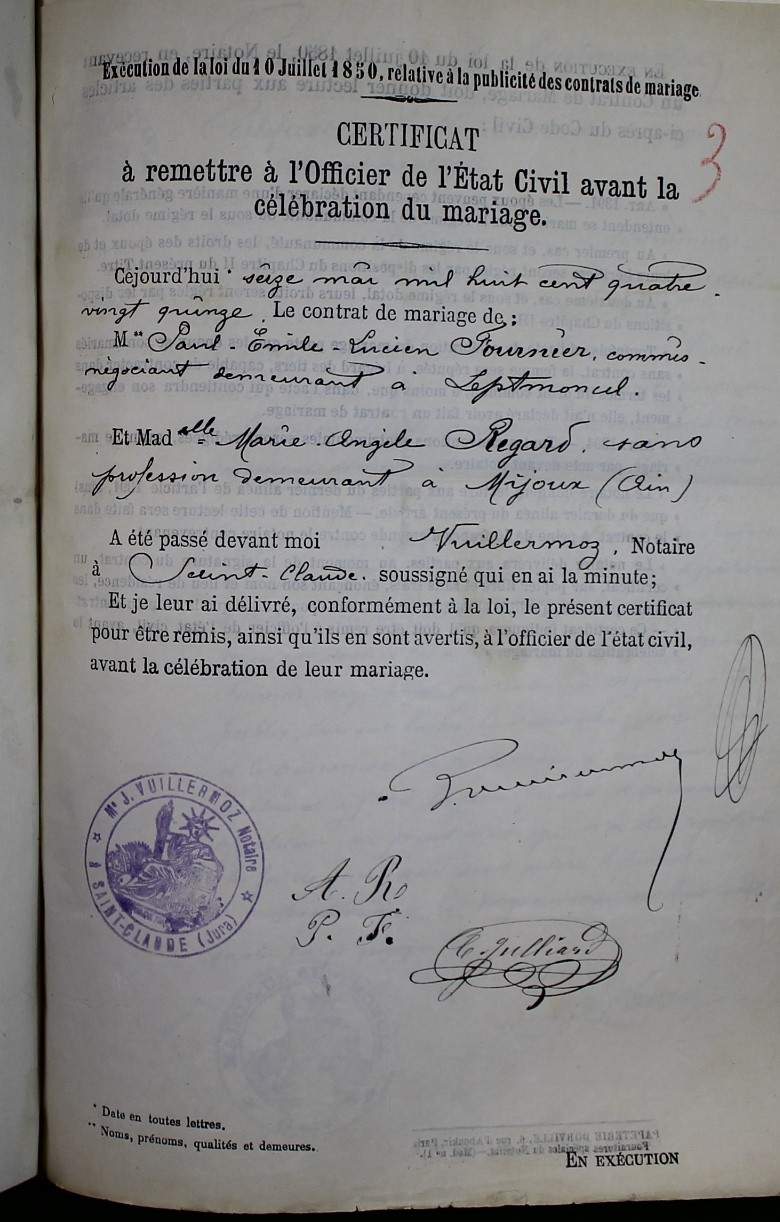 Exécution de la loi du 10 Juillet 1850, relative à la publicité des contrats de mariage
3
CERTIFICAT
à remettre à l'Officier de l'État Civil avant la
célébration du mariage.
Cejourd'hui * seize mai mil huit cent quatre-
vingt quinze. Le contrat de mariage de :
M** Paul-Emile-Lucien Fournier, commis-
négociant demeurant à Septmoncel.
Et Mad elle Marie-Angèle Regard, sans
profession demeurant à Mijoux (Ain)
A été passé devant moi Vuillermoz, Notaire
à Saint-Claude. soussigné qui en ai la minute;
Et je leur ai délivré, conformément à la loi, le présent certificat
pour être remis, ainsi qu'ils en sont avertis, à l'officier de l'état civil,
avant la célébration de leur mariage.
Mᵉ J. VUILLERMOZ Notaire
À SAINT-CLAUDE (Jura)
A. R.
P. F.
C. Julliard
* Date en toutes lettres.
** Noms, prénoms, qualités et demeures.
EN EXÉCUTION